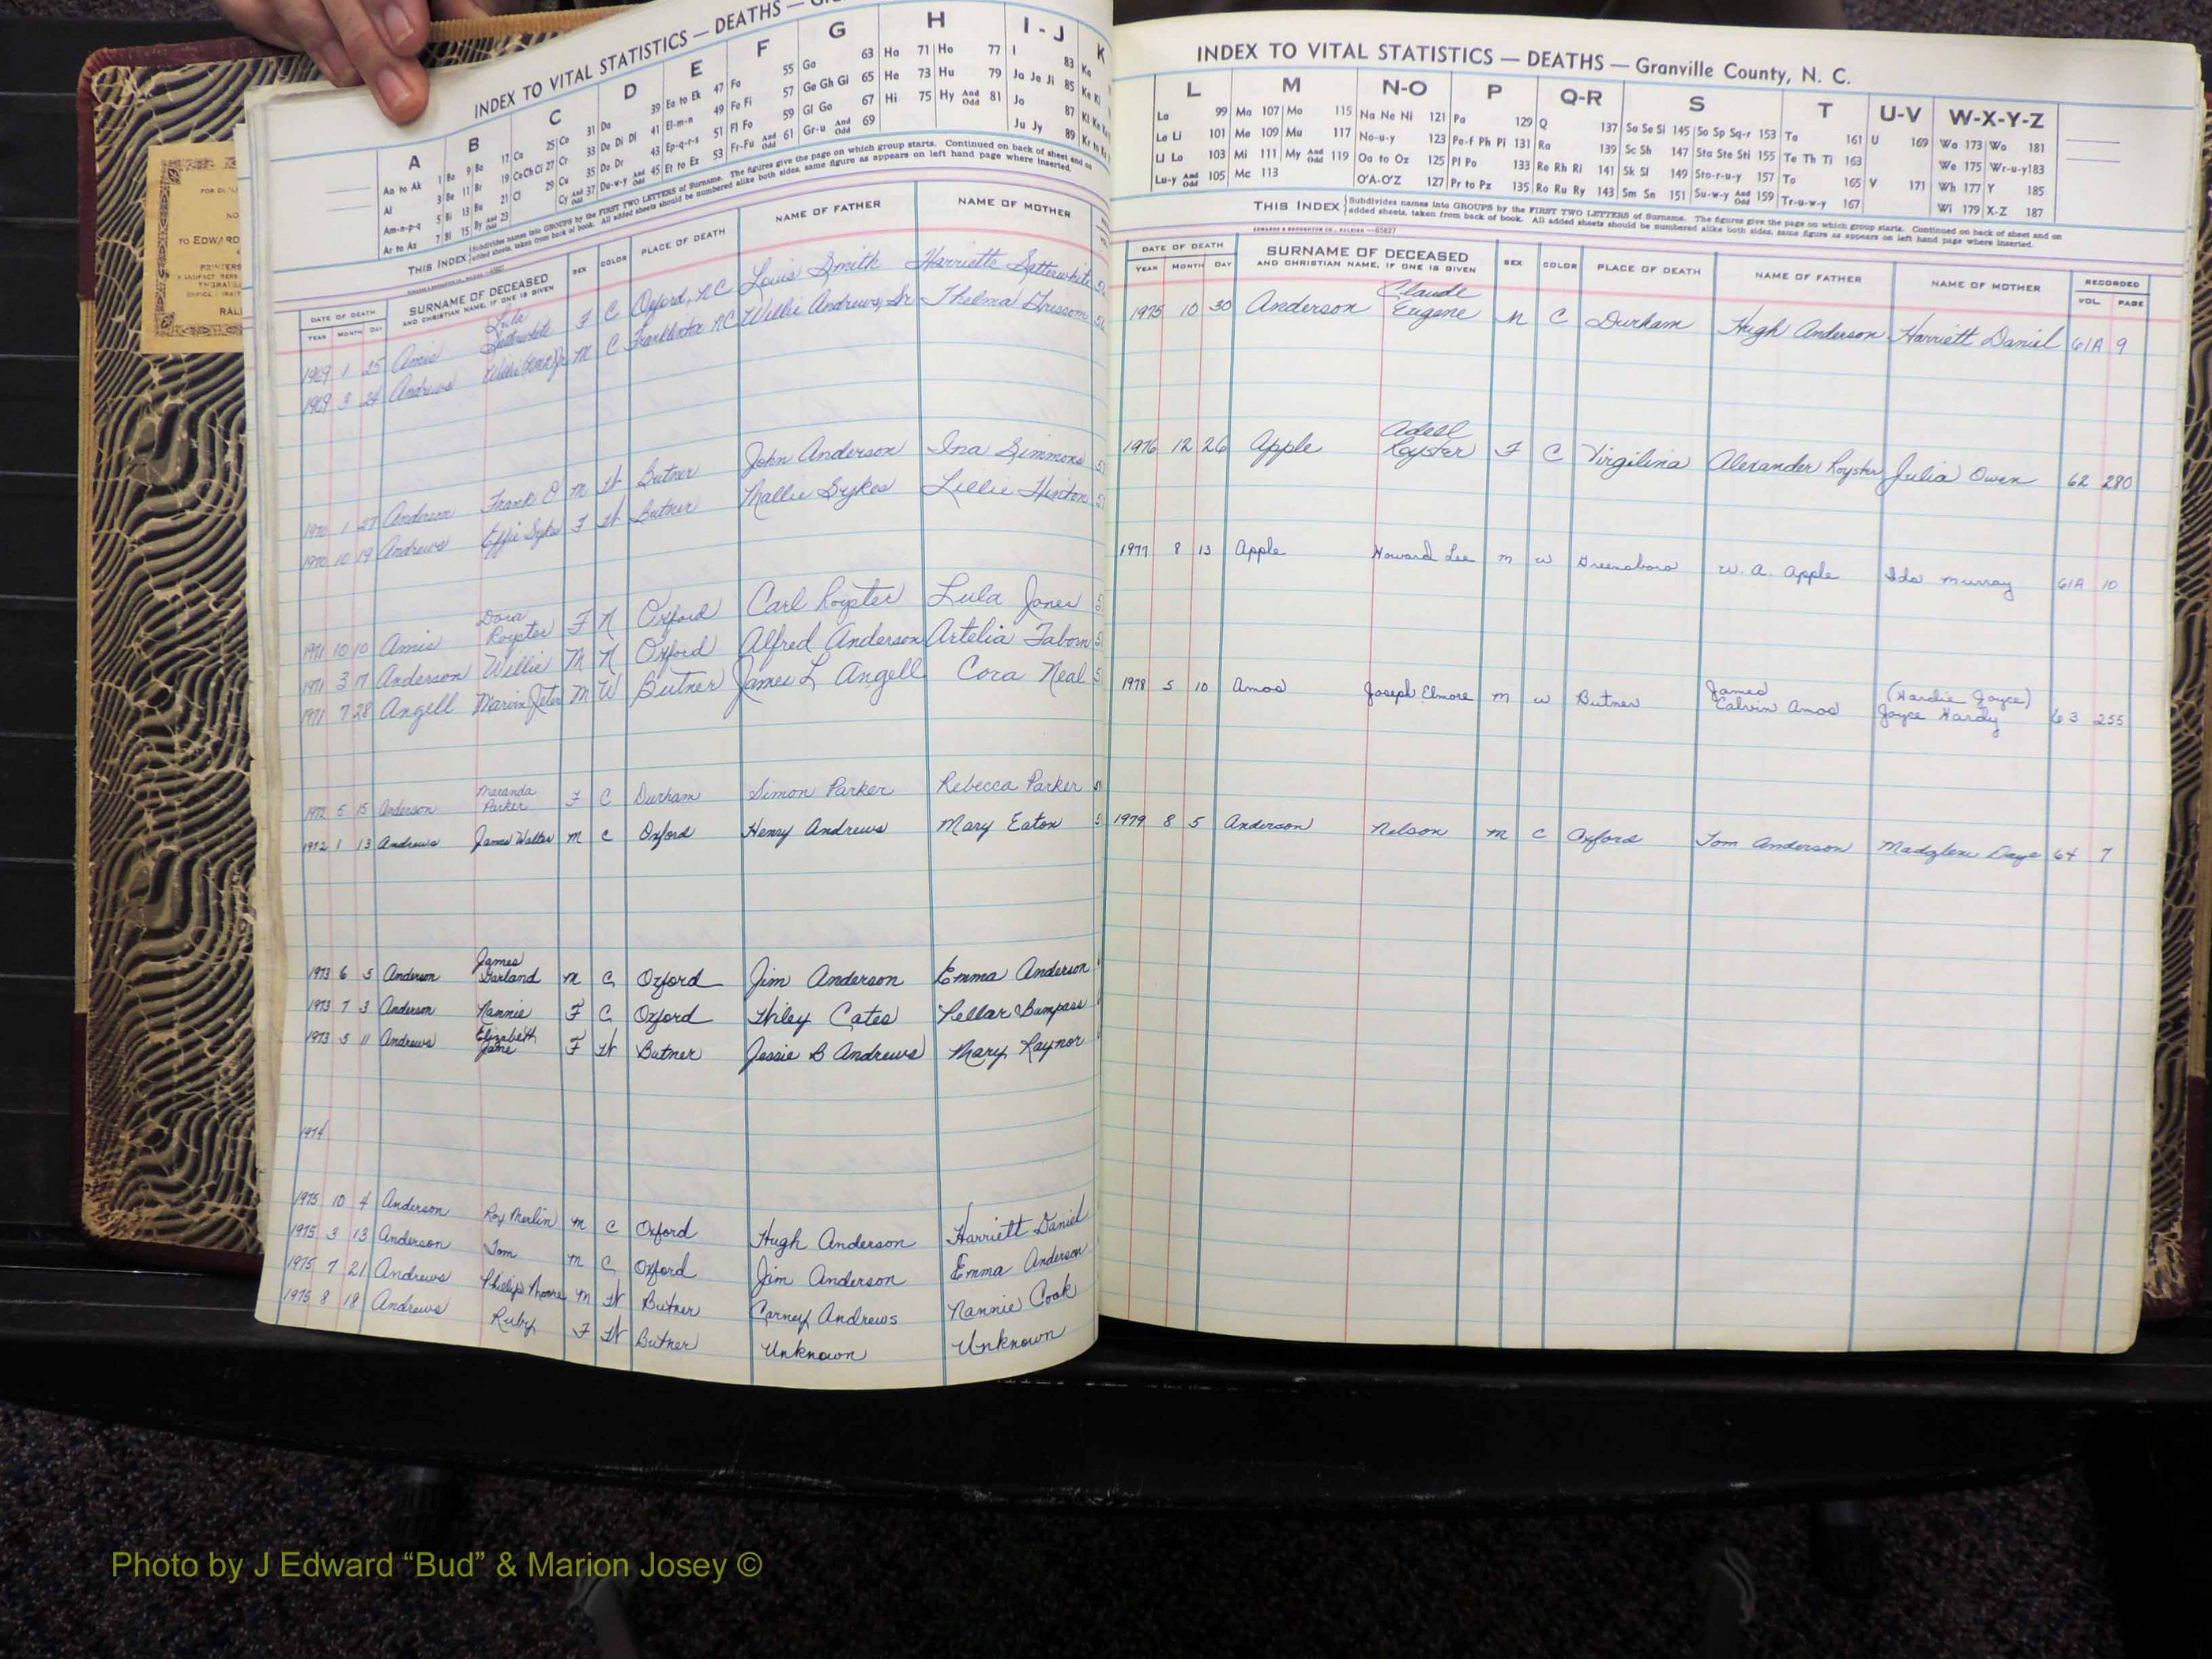 INDEX TO VITAL STATISTICS — DEATHS —
A B C D E F G H I - J K
Aa to Ak 1 Ba 9 Be 17 Ca 25 Co 31 Da 39 Ea to Ek 47 Fa 55 Ga 63 Ha 71 Ho 77 I 83 Ka
Al 3 Be 11 Br 19 CeChCl 27 Cr 33 De Di Dl 41 El-m-n 49 Fe Fi 57 Ge Gh Gi 65 He 73 Hu 79 Ja Je Ji 85 Ke Ki
Am-n-p-q 5 Bi 13 Bu 21 Cl 29 Cu 35 Do Dr 43 Ep-q-r-s 51 Fl Fo 59 Gl Go 67 Hi 75 Hy And Odd 81 Jo 87
Ar to Az 7 Bl 15 By And Odd 23 Cy And Odd 37 Du-w-y And Odd 45 Et to Ez 53 Fr-Fu And Odd 61 Gr-u And Odd 69 Ju Jy 89
THIS INDEX Subdivides names into GROUPS by the FIRST TWO LETTERS of Surname. The figures give the page on which group starts. Continued on back of sheet and on
added sheets, taken from back of book. All added sheets should be numbered alike both sides, same figure as appears on left hand page where inserted.
DATE OF DEATH SURNAME OF DECEASED SEX COLOR PLACE OF DEATH NAME OF FATHER NAME OF MOTHER
YEAR MONTH DAY AND CHRISTIAN NAME, IF ONE IS GIVEN
1969 1 25 Amis Lula Satterwhite F C Oxford, NC Louis Smith Harriette Satterwhite
1969 3 24 Andrews M C Franklinton NC Willie Andrews, Sr Thelma Grissom
1970 1 27 Anderson Frank C M W Butner John Anderson Ina Simmons
1970 10 19 Andrews Effie Sykes F W Butner Mallie Sykes Lillie Hinton
1971 10 10 Amis Dora Royster F N Oxford Carl Royster Lula Jones
1971 3 17 Anderson Willie M N Oxford Alfred Anderson Artelia Taborn
1971 7 28 Angell Marvin Jeter M W Butner James L Angell Cora Neal
1972 5 15 Anderson Maranda Parker F C Durham Simon Parker Rebecca Parker
1972 1 13 Andrews James Walter M C Oxford Henry Andrews Mary Eaton
1973 6 5 Anderson James Garland M C Oxford Jim Anderson Emma Anderson
1973 7 3 Anderson Nannie F C Oxford Wiley Cates Pellar Bumpass
1973 5 11 Andrews Elizabeth Jane F W Butner Jessie B Andrews Mary Raynor
1974
1975 10 4 Anderson Roy Merlin M C Oxford Hugh Anderson Harriett Daniel
1975 3 13 Anderson Tom M C Oxford Jim Anderson Emma Anderson
1975 7 21 Andrews Philip Moore M W Butner Carney Andrews Nannie Cook
1975 8 18 Andrews Ruby F W Butner Unknown Unknown
INDEX TO VITAL STATISTICS — DEATHS — Granville County, N. C.
L M N-O P Q-R S T U-V W-X-Y-Z
La 99 Ma 107 Mo 115 Na Ne Ni 121 Pa 129 Q 137 Sa Se Si 145 So Sp Sq-r 153 Ta 161 U 169 Wa 173 Wo 181
Le Li 101 Me 109 Mu 117 No-u-y 123 Pe-f Ph Pi 131 Ra 139 Sc Sh 147 Sta Ste Sti 155 Te Th Ti 163 We 175 Wr-u-y 183
Ll Lo 103 Mi 111 My And Odd 119 Oa to Oz 125 Pl Po 133 Re Rh Ri 141 Sk Sl 149 Sto-r-u-y 157 To 165 V 171 Wh 177 Y 185
Lu-y And Odd 105 Mc 113 O'A-O'Z 127 Pr to Pz 135 Ro Ru Ry 143 Sm Sn 151 Su-w-y And Odd 159 Tr-u-w-y 167 Wi 179 X-Z 187
THIS INDEX Subdivides names into GROUPS by the FIRST TWO LETTERS of Surname. The figures give the page on which group starts. Continued on back of sheet and on
added sheets, taken from back of book. All added sheets should be numbered alike both sides, same figure as appears on left hand page where inserted.
EDWARDS & BROUGHTON CO., RALEIGH—65827
DATE OF DEATH SURNAME OF DECEASED SEX COLOR PLACE OF DEATH NAME OF FATHER NAME OF MOTHER RECORDED
YEAR MONTH DAY AND CHRISTIAN NAME, IF ONE IS GIVEN VOL. PAGE
1975 10 30 Anderson Claude Eugene M C Durham Hugh Anderson Harriett Daniel 61A 9
1976 12 26 Apple Adell Royster F C Virgilina Alexander Royster Julia Owen 62 280
1977 8 13 Apple Howard Lee M W Greensboro W. A. Apple Ida Murray 61A 10
1978 5 10 Amos Joseph Elmore M W Butner James Calvin Amos (Hardie Joyce) Joyce Hardy 63 255
1979 8 5 Anderson Nelson M C Oxford Tom Anderson Madglene Daye 64 7
TO EDWARD
PRINTERS
RAL
Photo by J Edward “Bud” & Marion Josey ©